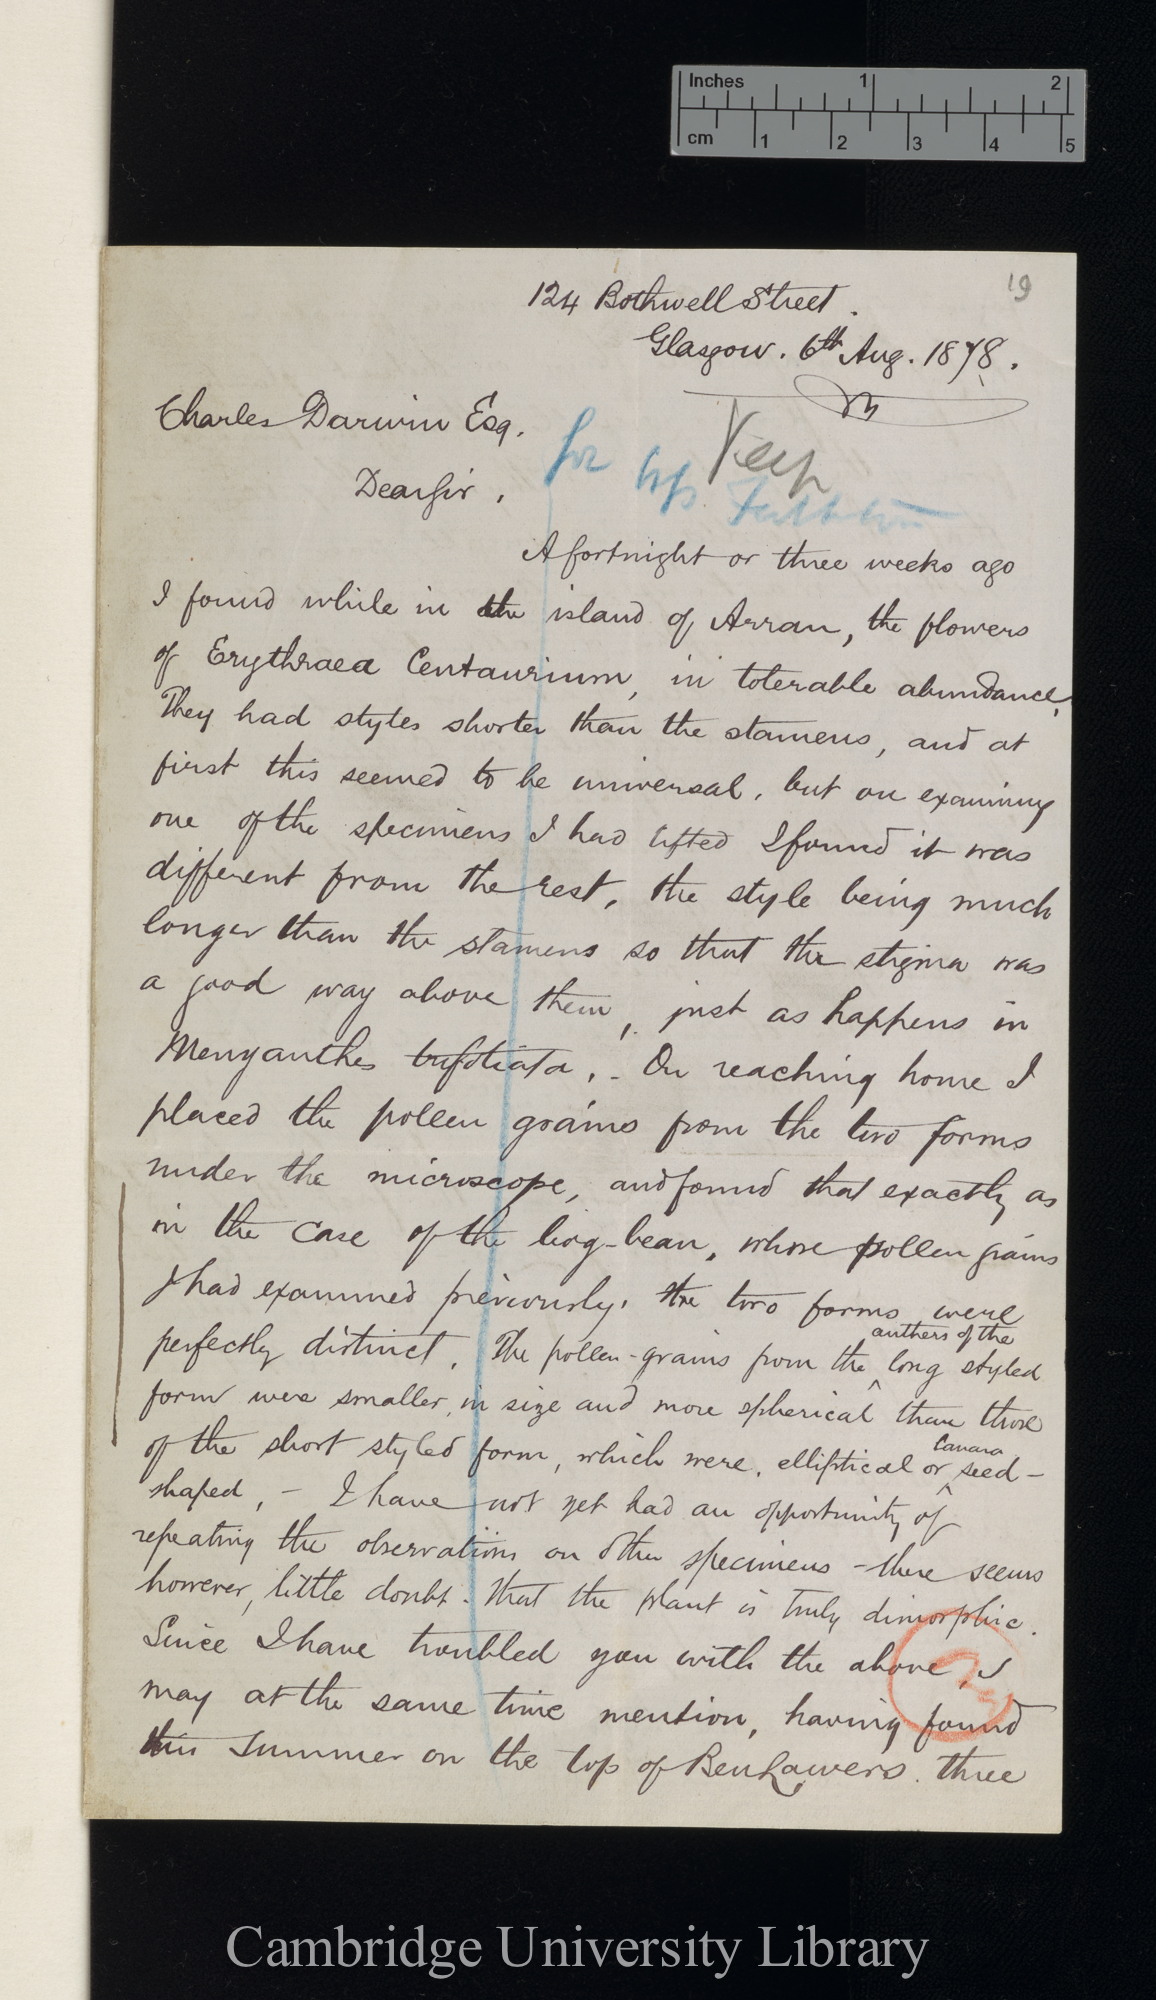 Inches 1 2
cm 1 2 3 4 5
19
124 Bothwell Street.
Glasgow. 6th Aug. 1878.
Charles Darwin Esq.
Keep
for
Dear Sir,
A fortnight or three weeks ago
I found while in the island of Arran, the flowers
of Erythraea Centaurium, in tolerable abundance.
They had styles shorter than the stamens, and at
first this seemed to be universal, but on examining
one of the specimens I had lifted I found it was
different from the rest, the style being much
longer than the stamens so that the stigma was
a good way above them, just as happens in
Menyanthes trifoliata. - On reaching home I
placed the pollen grains from the two forms
under the microscope, and found that exactly as
in the case of the bog-bean, whose pollen grains
I had examined previously, the two forms were
perfectly distinct. The pollen-grains from the anthers of the long styled
form were smaller in size and more spherical than those
of the short styled form, which were, elliptical or Canara seed-
shaped, - I have not yet had an opportunity of
repeating the observations on other specimens - there seems
however, little doubt that the plant is truly dimorphic.
Since I have troubled you with the above, I
may at the same time mention, having found
this Summer on the top of Ben Lawers three
Cambridge University Library